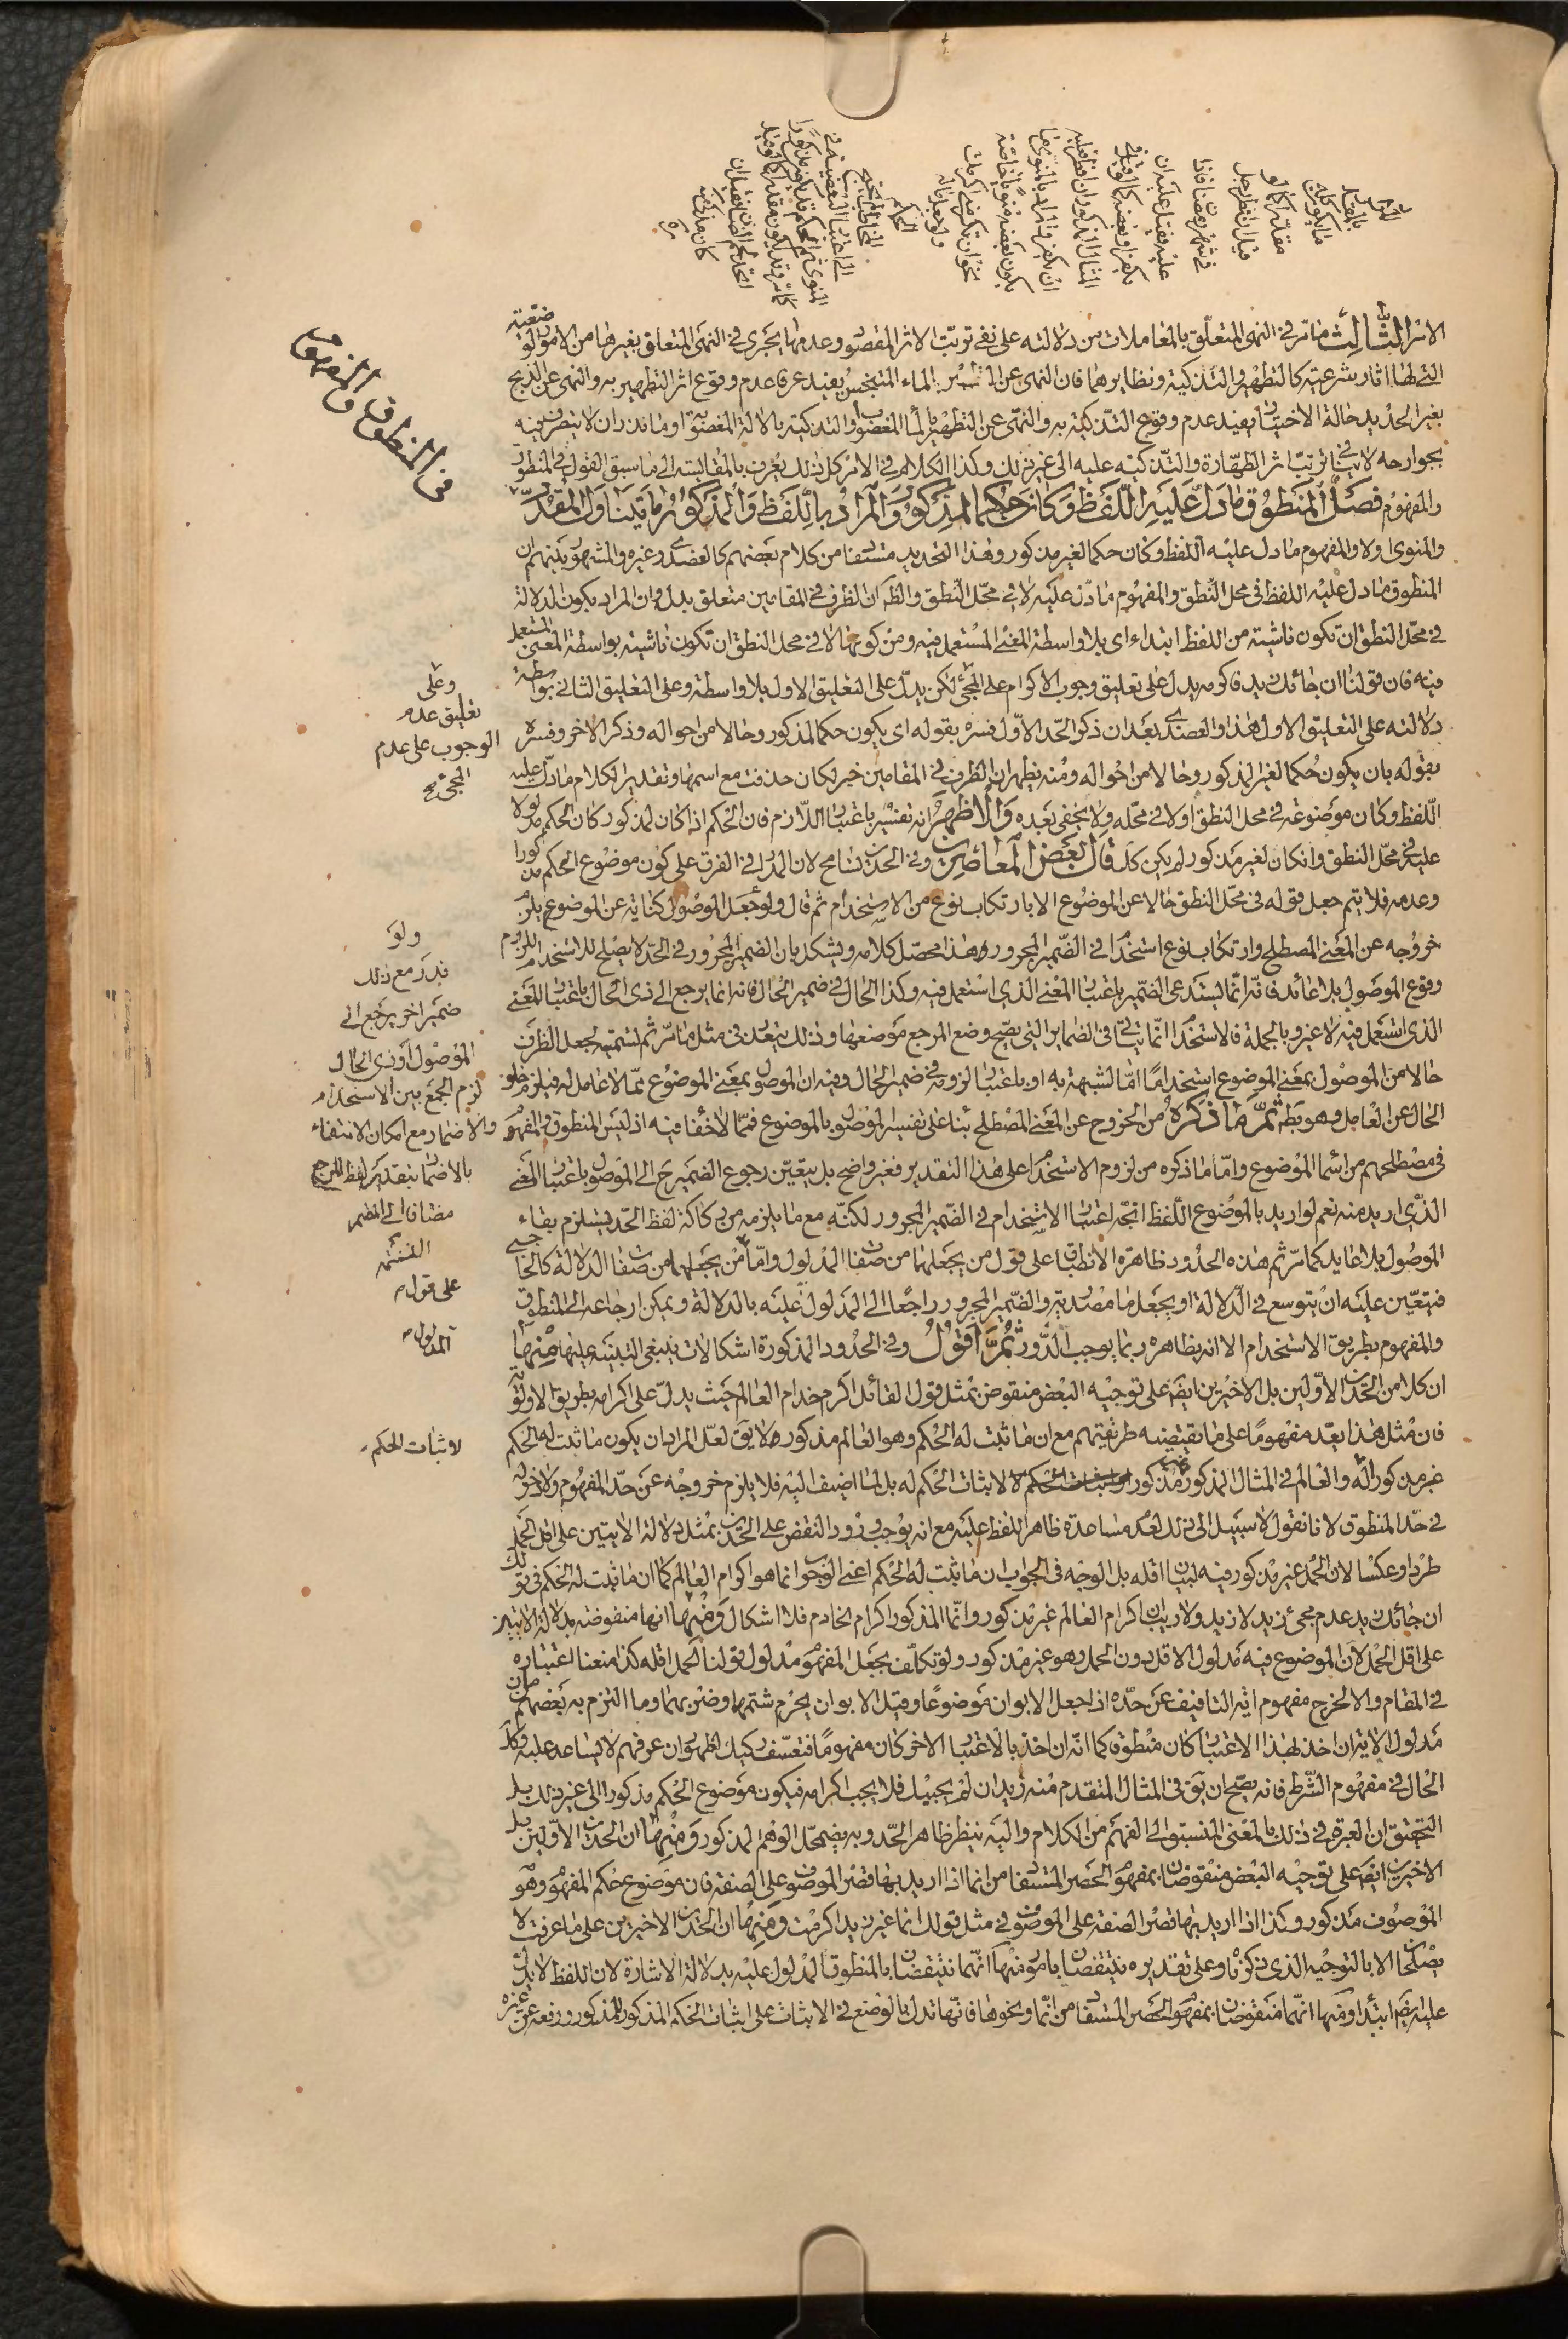 المراد
بالمقدر
ما يكون كلية
مقدرا كما لو
قيل ان افطر رجل
في شهر رمضان فاذا
عليه فقيل عليه ان
يكفر او يعضه كما لو قيل في
المثال المذكور ان افطر فعليه
ان يكفر والمراد بالمنوي ما
يكون بعضه منويا خاصة
نحو ان تكرمني اكرمك
ولو جعل بالـ
الحكم
المخاطب
الى اعتبار البعضية في
المنوي ثم الحكم قد يكون مذكورا
كما مر وقد يكون مقدرا كما لو قيل
كان مذكور
منه
في المنطوق والمفهوم
الامر الثالث ما مر في النهي المتعلق بالمعاملات من دلالته على نفي ترتب الاثر المقصود وعدمها يجري في النهي المتعلق بغيرها من الامور الوضعية
التي لها اثار شرعية كالتطهير والتذكية ونظايرهما فان النهي عن التطهير بالماء المتنجس يفيد عرفا عدم وقوع اثر التطهير به والنهي عن الذبح
بغير الحديد حالة الاختيار يفيد عدم وقوع التذكية به والنهي عن التطهير بالماء المغصوب او التذكية بالالة المغصوبة او ما نذر ان لا يتصرف فيه
بجوارحه لا ينافي ترتب اثر الطهارة والتذكية عليه الى غير ذلك وكذا الكلام في الامر كل ذلك يعرف بالمقايسة الى ما سبق القول في المنطوق
والمفهوم فصل المنطوق ما دل عليه اللفظ وكان حكما لمذكور والمراد باللفظ والمذكور ما يتناول المقدر
والمنوي اولا والمفهوم ما دل عليه اللفظ وكان حكما لغير مذكور وهذا التحديد مستفاد من كلام بعضهم كالعضدي وغيره والمشهور بينهم ان
المنطوق ما دل عليه اللفظ في محل النطق والمفهوم ما دل عليه لا في محل النطق والظاهر ان الظرف في المقامين متعلق بدل وان المراد بكون الدلالة
في محل النطق ان تكون ناشئة من اللفظ ابتداء اي بلا واسطة المعنى المستعمل فيه ومن كونها لا في محل النطق ان تكون ناشئة بواسطة المعنى المستعمل
فيه فان قولنا ان جائك زيد فاكرمه يدل على تعليق وجوب الاكرام على المجئ لكن يدل على التعليق الاول بلا واسطة وعلى التعليق الثاني بواسطة
وعلى
تعليق عدم
الوجوب على عدم
المجئ صح
دلالته على التعليق الاول هذا والعضدي بعد ان ذكر الحد الاول فسره بقوله اي يكون حكما لمذكور وحالا من احواله وذكر الاخر وفسره
بقوله بان يكون حكما لغير المذكور وحالا من احواله ومنه يظهر ان الظرف في المقامين خبر لكان حذفت مع اسمها وتقدير الكلام ما دل عليه
اللفظ وكان موضوعه في محل النطق اولا في محله ولا يخفى بعده والاظهر انه تفسير باعتبار اللازم فان الحكم اذا كان لمذكور كان الحكم مدلولا
عليه في محل النطق وان كان لغير مذكور لم يكن كك قال بعض المعاصرين وفي الحدين تسامح لان المدار في الفرق على كون موضوع الحكم مذكورا
وعدمه فلا يتم جعل قوله في محل النطق حالا عن الموضوع الا بارتكاب نوع من الاستخدام ثم قال ولو جعل الموصول كناية عن الموضوع يلزم
خروجه عن المعنى المصطلح وارتكاب نوع استخدام في الضمير المجرور وهذا محصل كلامه ويشكل بان الضمير المجرور في الحد لا يصلح للاستخدام للزوم
وقوع الموصول بلا عائد فانه انما يستدعي الضمير باعتبار المعنى الذي استعمل فيه وكذا الحال في ضمير الحال فانه انما يرجع الى ذي الحال باعتبار المعنى
ولو
قدر مع ذلك
ضمير اخر يرجع الى
الموصول او ذي الحال
لزم الجمع بين الاستخدام
والاضمار مع امكان الاكتفاء
بالاضمار بتقدير لفظ المرجع
مضافا الى المضمر
الذي استعمل فيه لا غير وبالجملة فالاستخدام انما يتأتى في الضماير التي يصح وضع المرجع موضعها وذلك يتعذر في مثل ما مر ثم تسميته بجعل الظرف
حالا من الموصول بمعنى الموضوع استخداما اما لشبهة به او باعتبار لزومه في ضمير الحال وفيه ان الموصول بمعنى الموضوع مما لا عامل له فيلزم خلو
الحال عن العامل وهو بط ثم ما ذكره من الخروج عن المعنى المصطلح بناء على تفسير الموصول بالموضوع فمما لا خفاء فيه اذ ليس المنطوق والمفهوم
في مصطلحهم من اسماء الموضوع واما ما ذكره من لزوم الاستخدام على هذا التقدير فغير واضح بل يتعين رجوع الضمير ح الى الموصول باعتبار المعنى
الذي اريد منه نعم لو اريد بالموضوع اللفظ اتجه اعتبار الاستخدام في الضمير المجرور لكنه مع ما يلزمه من ركاكة لفظ الحد يستلزم بقاء
الموصول بلا عايد كما مر ثم هذه الحدود ظاهرة الانطباق على قول من يجعلهما من صفات المدلول واما من يجعلهما من صفات الدلالة كالحاجبي
على قول
المدلول
فيتعين عليه ان يتوسع في الدلالة او يجعل ما مصدرية والضمير المجرور راجعا الى المدلول عليه بالدلالة ويمكن ارجاعه الى المنطوق
والمفهوم بطريق الاستخدام الا انه بظاهره ربما يوجب الدور ثم اقول وفي الحدود المذكورة اشكالات ينبغي التنبيه عليها منها
ان كلا من الحدين الاولين بل الاخيرين ايضا على توجيه البعض منقوض بمثل قول القائل اكرم خدام العالم حيث يدل على اكرامه بطريق الاولوية
فان مثل هذا يعد مفهوما على ما يقتضيه طريقتهم مع ان ما ثبت له الحكم وهو العالم مذكور ولا يق لعل المراد ان يكون ما ثبت له الحكم
لاثبات الحكم
غير مذكور له والعالم في المثال المذكور غير مذكور لاثبات الحكم له بل لما اضيف اليه فلا يلزم خروجه عن حد المفهوم ولا دخوله
في حد المنطوق لانا نقول لا سبيل الى ذلك لعدم مساعدة ظاهر اللفظ عليه مع انه يوجب ورود النقض على الحدين بمثل دلالة الايتين على اقل الحمل
طردا وعكسا لان الحمل غير مذكور فيه لبيان اقله بل الوجه في الجواب ان ما ثبت له الحكم اعني الوجوب انما هو اكرام العالم كما ان ما ثبت له الحكم في قولك
ان جائك زيد عدم مجئ زيد لا زيد ولا ريب ان اكرام العالم غير مذكور وانما المذكور اكرام الخادم فلا اشكال ومنها انها منقوضة بدلالة الايتين
على اقل الحمل لان الموضوع فيه مدلول الاقل دون الحمل وهو غير مذكور ولو تكلف بجعل المفهوم مدلول قولنا الحمل اقله كذا منعنا اعتباره
في المقام والا لخرج مفهوم اية التافيف عن حده اذا جعل الابوان موضوعا وقيل الابوان يحرم شتمهما وضربهما وما التزم به بعضهم من ان
مدلول الاية ان اخذ بهذا الاعتبار كان منطوقا كما انه ان اخذ بالاعتبار الاخر كان مفهوما فتعسف ركيك لظهور ان عرفهم لا يساعد عليه وكذا
الحال في مفهوم الشرط فانه يصح ان يق في المثال المتقدم منه زيد ان لم يجئك فلا يجب اكرامه فيكون موضوع الحكم مذكورا الى غير ذلك بل
التحقيق ان العبرة في ذلك بالمعنى المنسبق الى الفهم من الكلام واليه ينظر ظاهر الحد وبه يضمحل الوهم المذكور ومنها ان الحدين الاولين بل
الاخيرين ايضا على توجيه البعض منقوضان بمفهوم الحصر المستفاد من انما اذا اريد بها قصر الموصوف على الصفة فان موضوع حكم المفهوم وهو
الموصوف مذكور وكذا اذا اريد بها قصر الصفة على الموصوف في مثل قولك انما غير زيد اكرمت ومنها ان الحدين الاخيرين على ما عرفت لا
يصلحان الا بالتوجيه الذي ذكرنا وعلى تقديره ينتقضان بامور منها انهما ينتقضان بالمنطوق المدلول عليه بدلالة الاشارة لان اللفظ لا يدل
عليه ايضا ابتداء ومنها انهما منقوضان بمفهوم الحصر المستفاد من انما ونحوها فانها تدل بالوضع في الاثبات على اثبات الحكم المذكور للمذكور ورفعه عن غيره